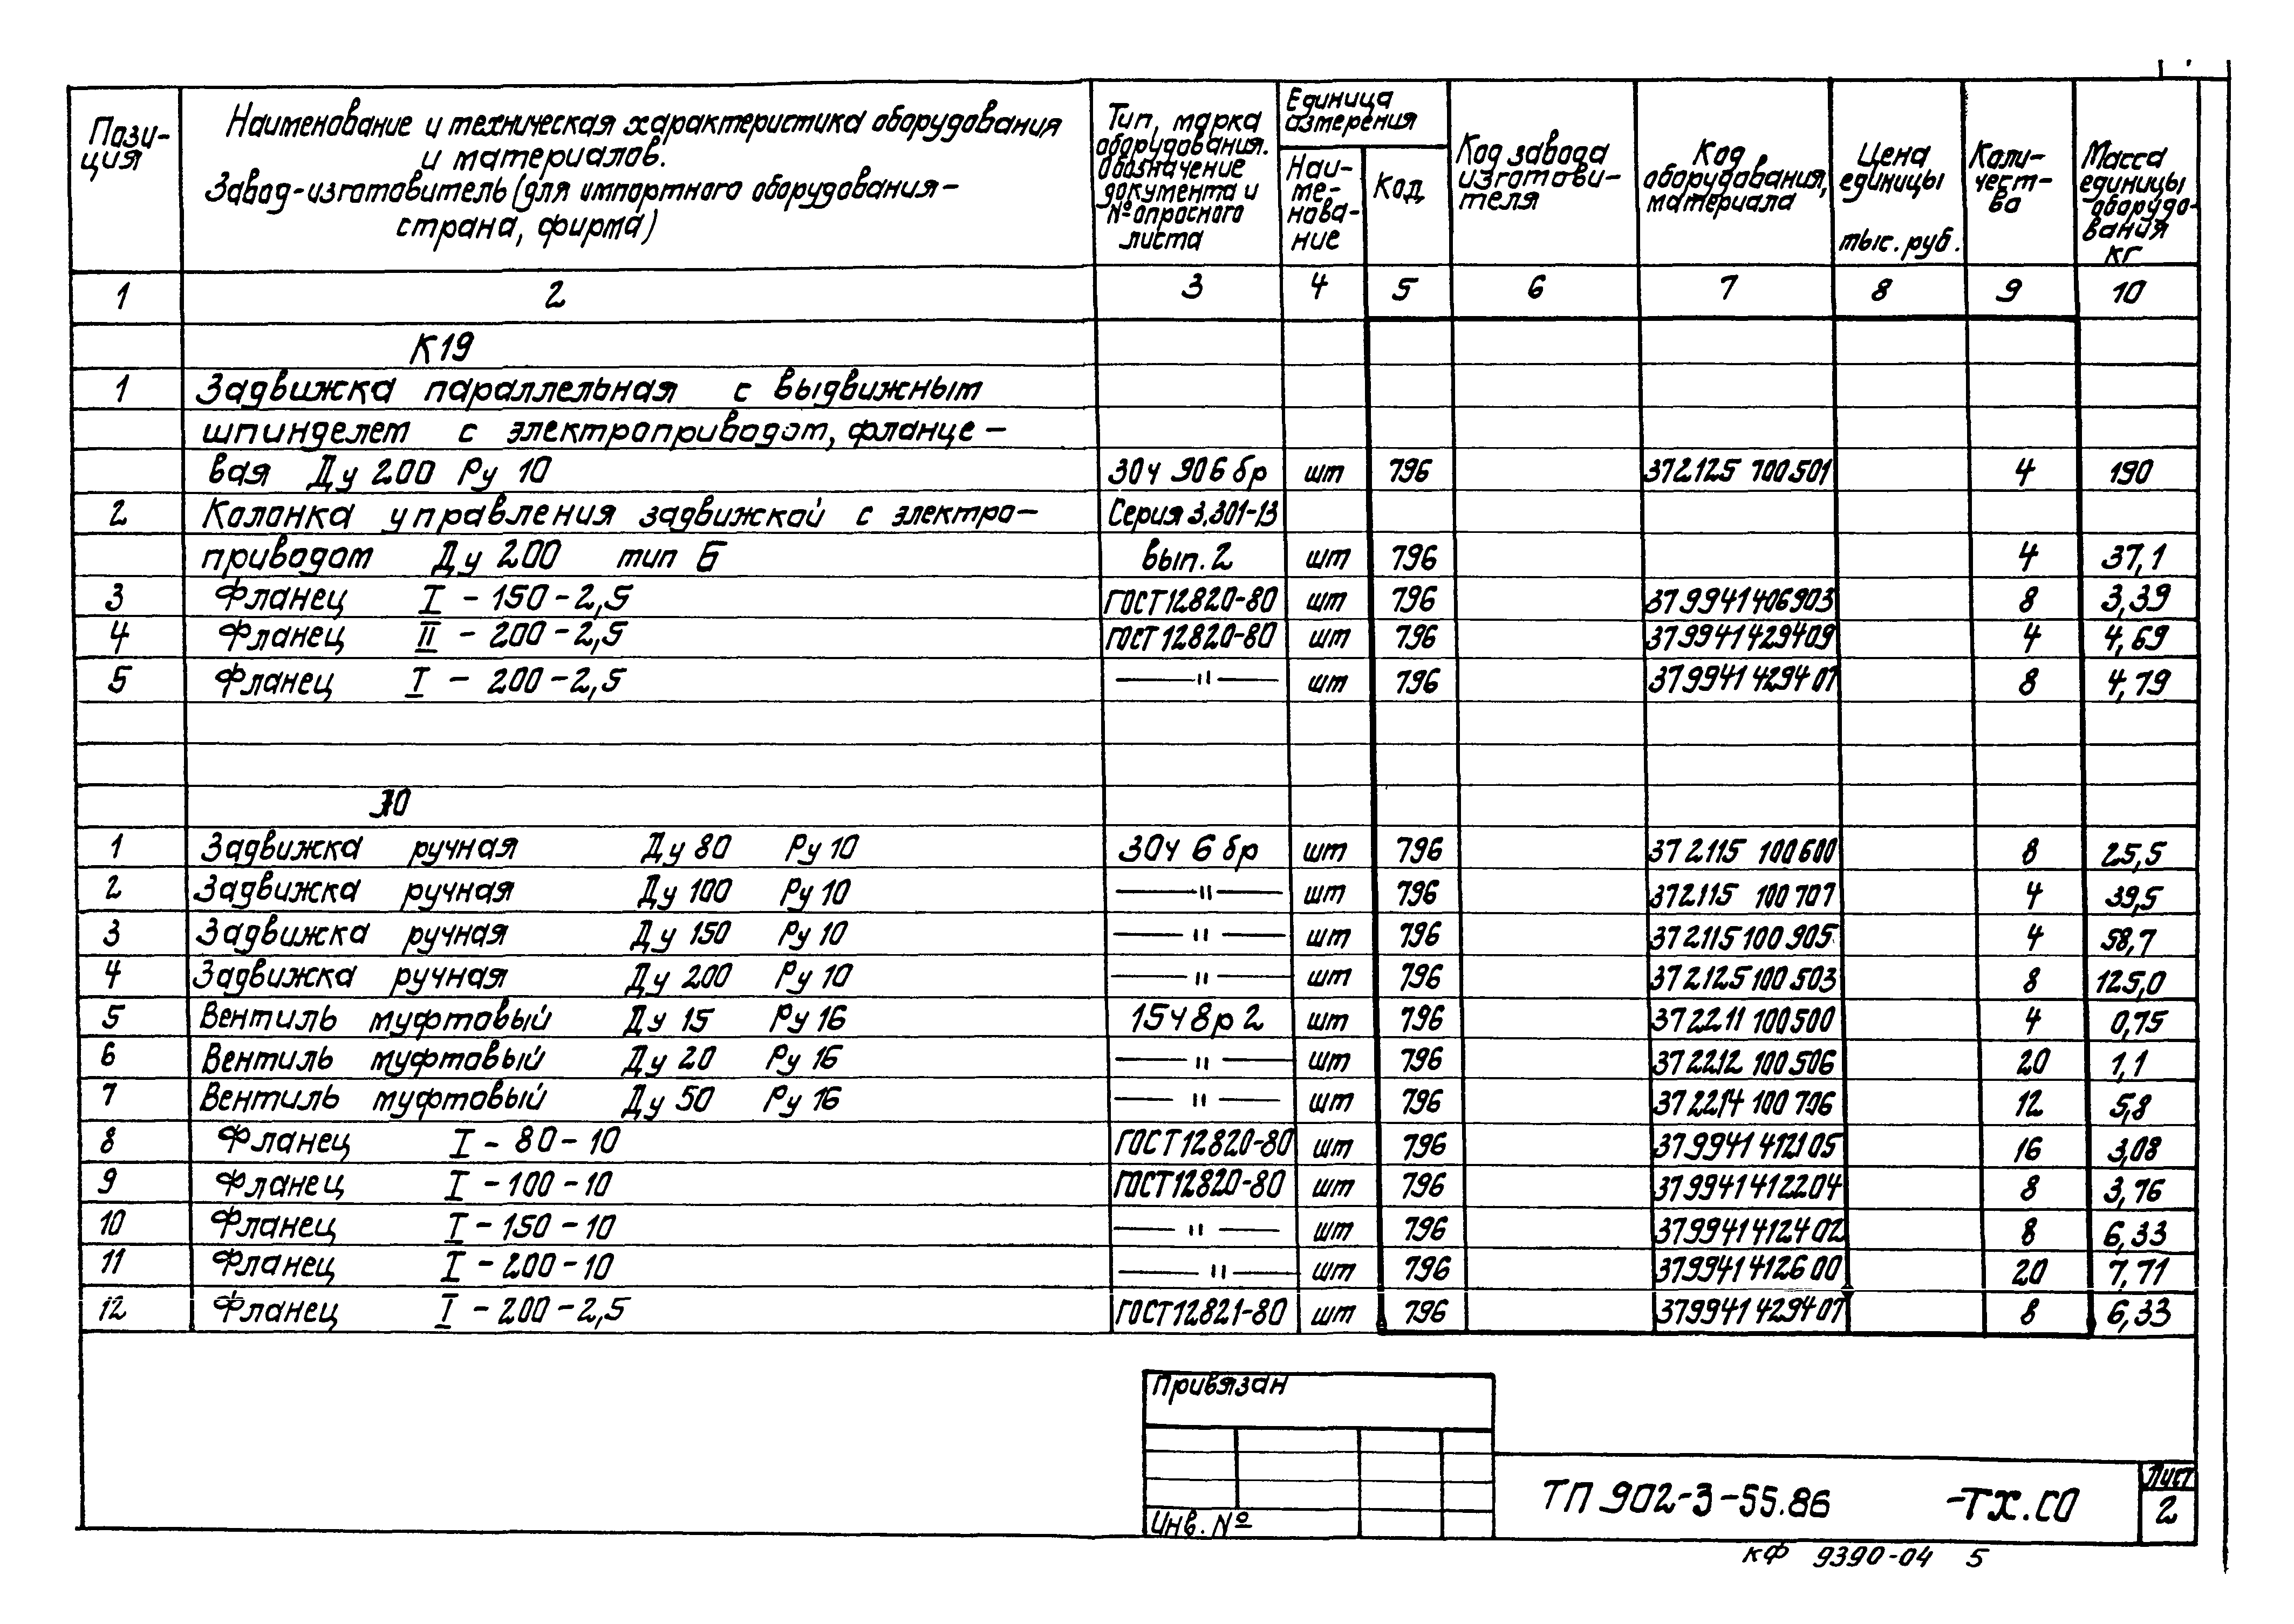 Пози-
ция
Наименование и техническая характеристика оборудования
и материалов.
Завод-изготовитель (для импортного оборудования-
страна, фирма)
Тип, марка
оборудования.
Обозначение
документа и
№ опросного
листа
Единица
измерения
Наи-
ме-
нова-
ние
Код
Код завода
изготови-
теля
Код
оборудования,
материала
Цена
единицы
тыс. руб.
Коли-
чест-
ва
Масса
единицы
оборудо-
вания
кг
1 2 3 4 5 6 7 8 9 10
К19
1 Задвижка параллельная с выдвижным
шпинделем с электроприводом, фланце-
вая Ду 200 Ру 10 30ч 906 бр шт 796 372125 700501 4 190
2 Колонка управления задвижкой с электро- Серия 3.301-13
приводом Ду 200 тип Б вып. 2 шт 796 4 37,1
3 Фланец I - 150 - 2,5 ГОСТ 12820-80 шт 796 379941406903 8 3,39
4 Фланец II - 200 - 2,5 ГОСТ 12820-80 шт 796 379941429409 4 4,69
5 Фланец I - 200 - 2,5 — " — шт 796 379941 429407 8 4,79
1 Задвижка ручная Ду 80 Ру 10 30ч 6 бр шт 796 372115 100600 8 25,5
2 Задвижка ручная Ду 100 Ру 10 — " — шт 796 372115 100707 4 39,5
3 Задвижка ручная Ду 150 Ру 10 — " — шт 796 372115 100905 4 58,7
4 Задвижка ручная Ду 200 Ру 10 — " — шт 796 372125 100503 8 125,0
5 Вентиль муфтовый Ду 15 Ру 16 15ч 8р 2 шт 796 372211 100500 4 0,75
6 Вентиль муфтовый Ду 20 Ру 16 — " — шт 796 372212 100506 20 1,1
7 Вентиль муфтовый Ду 50 Ру 16 — " — шт 796 372214 100706 12 5,8
8 Фланец I - 80 - 10 ГОСТ 12820-80 шт 796 379941 412105 16 3,08
9 Фланец I - 100 - 10 ГОСТ 12820-80 шт 796 379941412204 8 3,76
10 Фланец I - 150 - 10 — " — шт 796 379941412402 8 6,33
11 Фланец I - 200 - 10 — " — шт 796 379941412600 20 7,71
12 Фланец I - 200 - 2,5 ГОСТ 12821-80 шт 796 379941 429407 8 6,33
Привязан
Инв. №
ТП 902-3-55.86 -ТХ.СО
Лист
2
КФ 9390-04 5